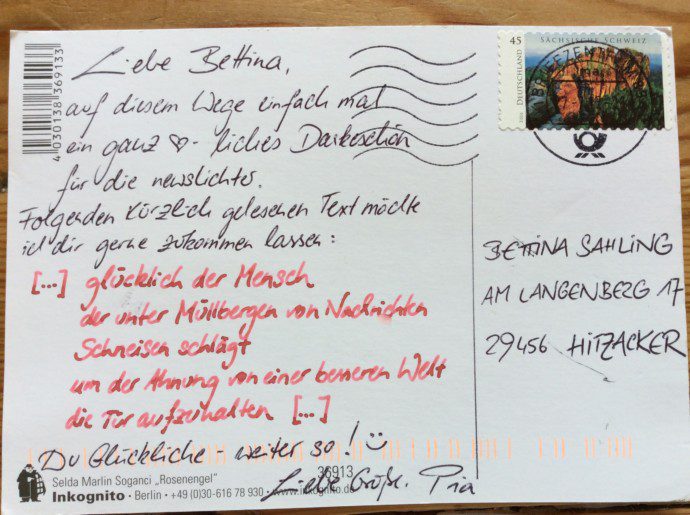 Liebe Bettina,
auf diesem Wege einfach mal
ein ganz ♡-liches Dankeschön
für die newslichter.
Folgenden kürzlich gelesenen Text möchte
ich dir gerne zukommen lassen:
[...] glücklich der Mensch
der unter Müllbergen von Nachrichten
Schneisen schlägt
um der Ahnung von einer besseren Welt
die Tür aufzuhalten [...]
Du Glückliche - weiter so!
Liebe Grüße. Pia
4030138369133
36913
Selda Marlin Soganci „Rosenengel"
Inkognito • Berlin • +49 (0)30-616 78 930 • www.inkognito.de
45
DEUTSCHLAND
SÄCHSISCHE SCHWEIZ
BRIEFZENTRUM
BETTINA SAHLING
AM LANGENBERG 17
29456 HITZACKER